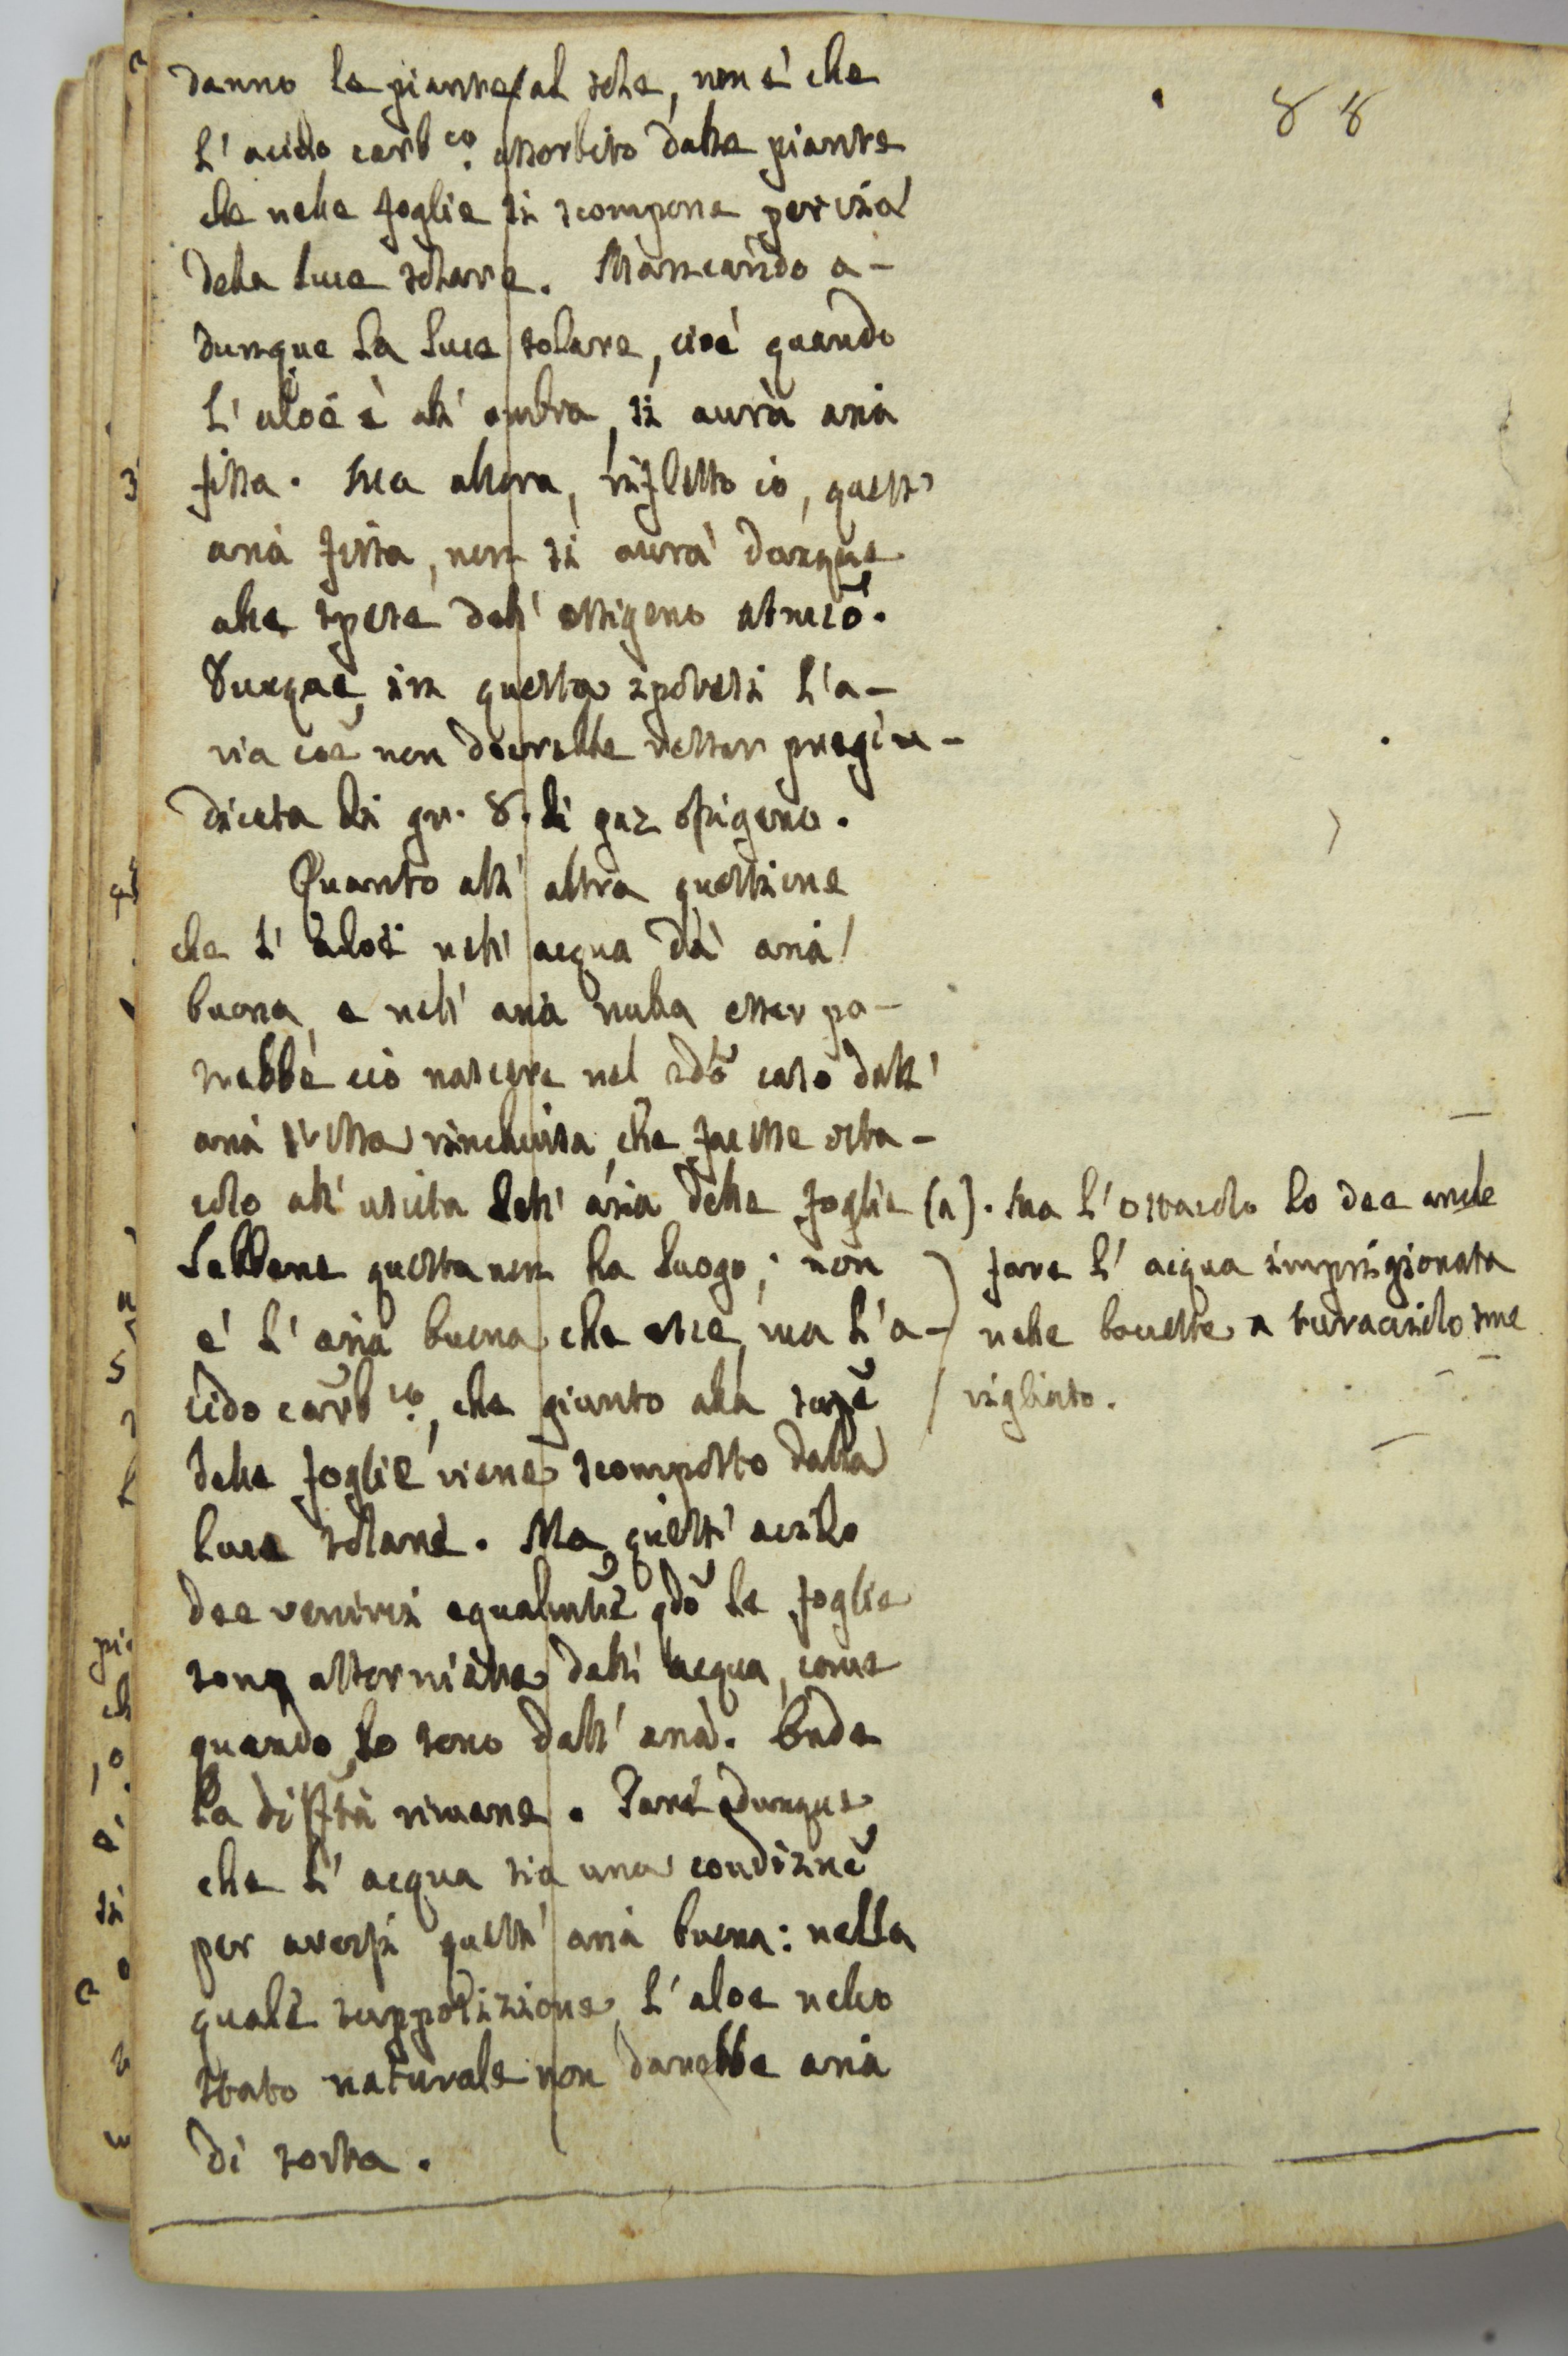 88
danno le piante al sole, non è che
l'acido carb.co assorbito dalle piante
che nelle foglie si scompone per via
della luce solare. Mancando a-
dunque la luce solare, cioè quando
l'aloè è all'ombra, si aurà aria
fissa. Ma allora, rifletto io, quest'
aria fissa, non si aurà dunque
alle spese dell'ossigeno atmco.
Dunque in questa ipotesi l'a-
ria coe non dovrebbe restar pregiu-
dicata di gr. 8. di gaz ossigeno.
Quanto all'altra questione
che l'aloè nell'acqua dà aria
buona, e nell'aria nulla, esser po-
trebbe ciò nascere nel 2do caso dall'
aria stessa rinchiusa, che facesse osta-
colo all'uscita dell'aria delle foglie (a).
Sebbene questa non ha luogo; non
è l'aria buona che esce, ma l'a-
cido carb.co, che giunto alla supe
delle foglie viene scomposto dalla
luce solare. Ma quest'acido
dee venirsi egualmte qdo le foglie
sono attorniate dall'acqua, come
quando lo sono dall'aria. Onde
la difftà rimane. Pare adunque
che l'acqua sia una condizne
per aversi quest'aria buona: nella
quale supposizione l'aloe nello
stato naturale non darebbe aria
di sorta.
(a). Ma l'ostacolo lo dee anche
fare l'acqua imprigionata
nelle boccette a turacciolo sme
rigliato.